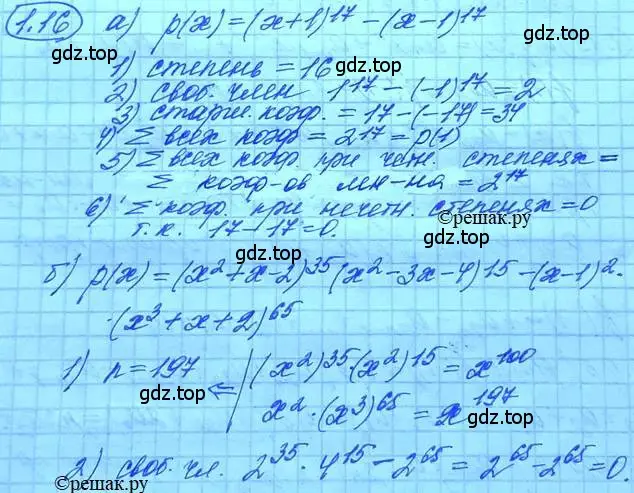 1.16 а) p(x) = (x+1)^17 - (x-1)^17
gdz.top gdz.top
1) степень = 16 gdz.top
2) своб. член 1^17 - (-1)^17 = 2
gdz.top
3) старш. коэф. = 17 - (-17) = 34
4) Σ всех коэф = 2^17 = p(1)
5) Σ всех коэф. при четн. степенях =
Σ коэф-ов мн-на = 2^17
6) Σ коэф. при нечетн. степенях = 0
©решак.ру
т.к. 17-17=0.
gdz.top
б) p(x) = (x^2+x-2)^35 (x^2-3x-4)^15 - (x-1)^2 ·
· (x^3+x+2)^65
gdz.top
1) n = 197 (x^2)^35 · (x^2)^15 = x^100
gdz.top ⇐ x^2 · (x^3)^65 = x^197
gdz.top
2) своб. чл. 2^35 · 4^15 - 2^65 = 2^65 - 2^65 = 0.
©решак.ру